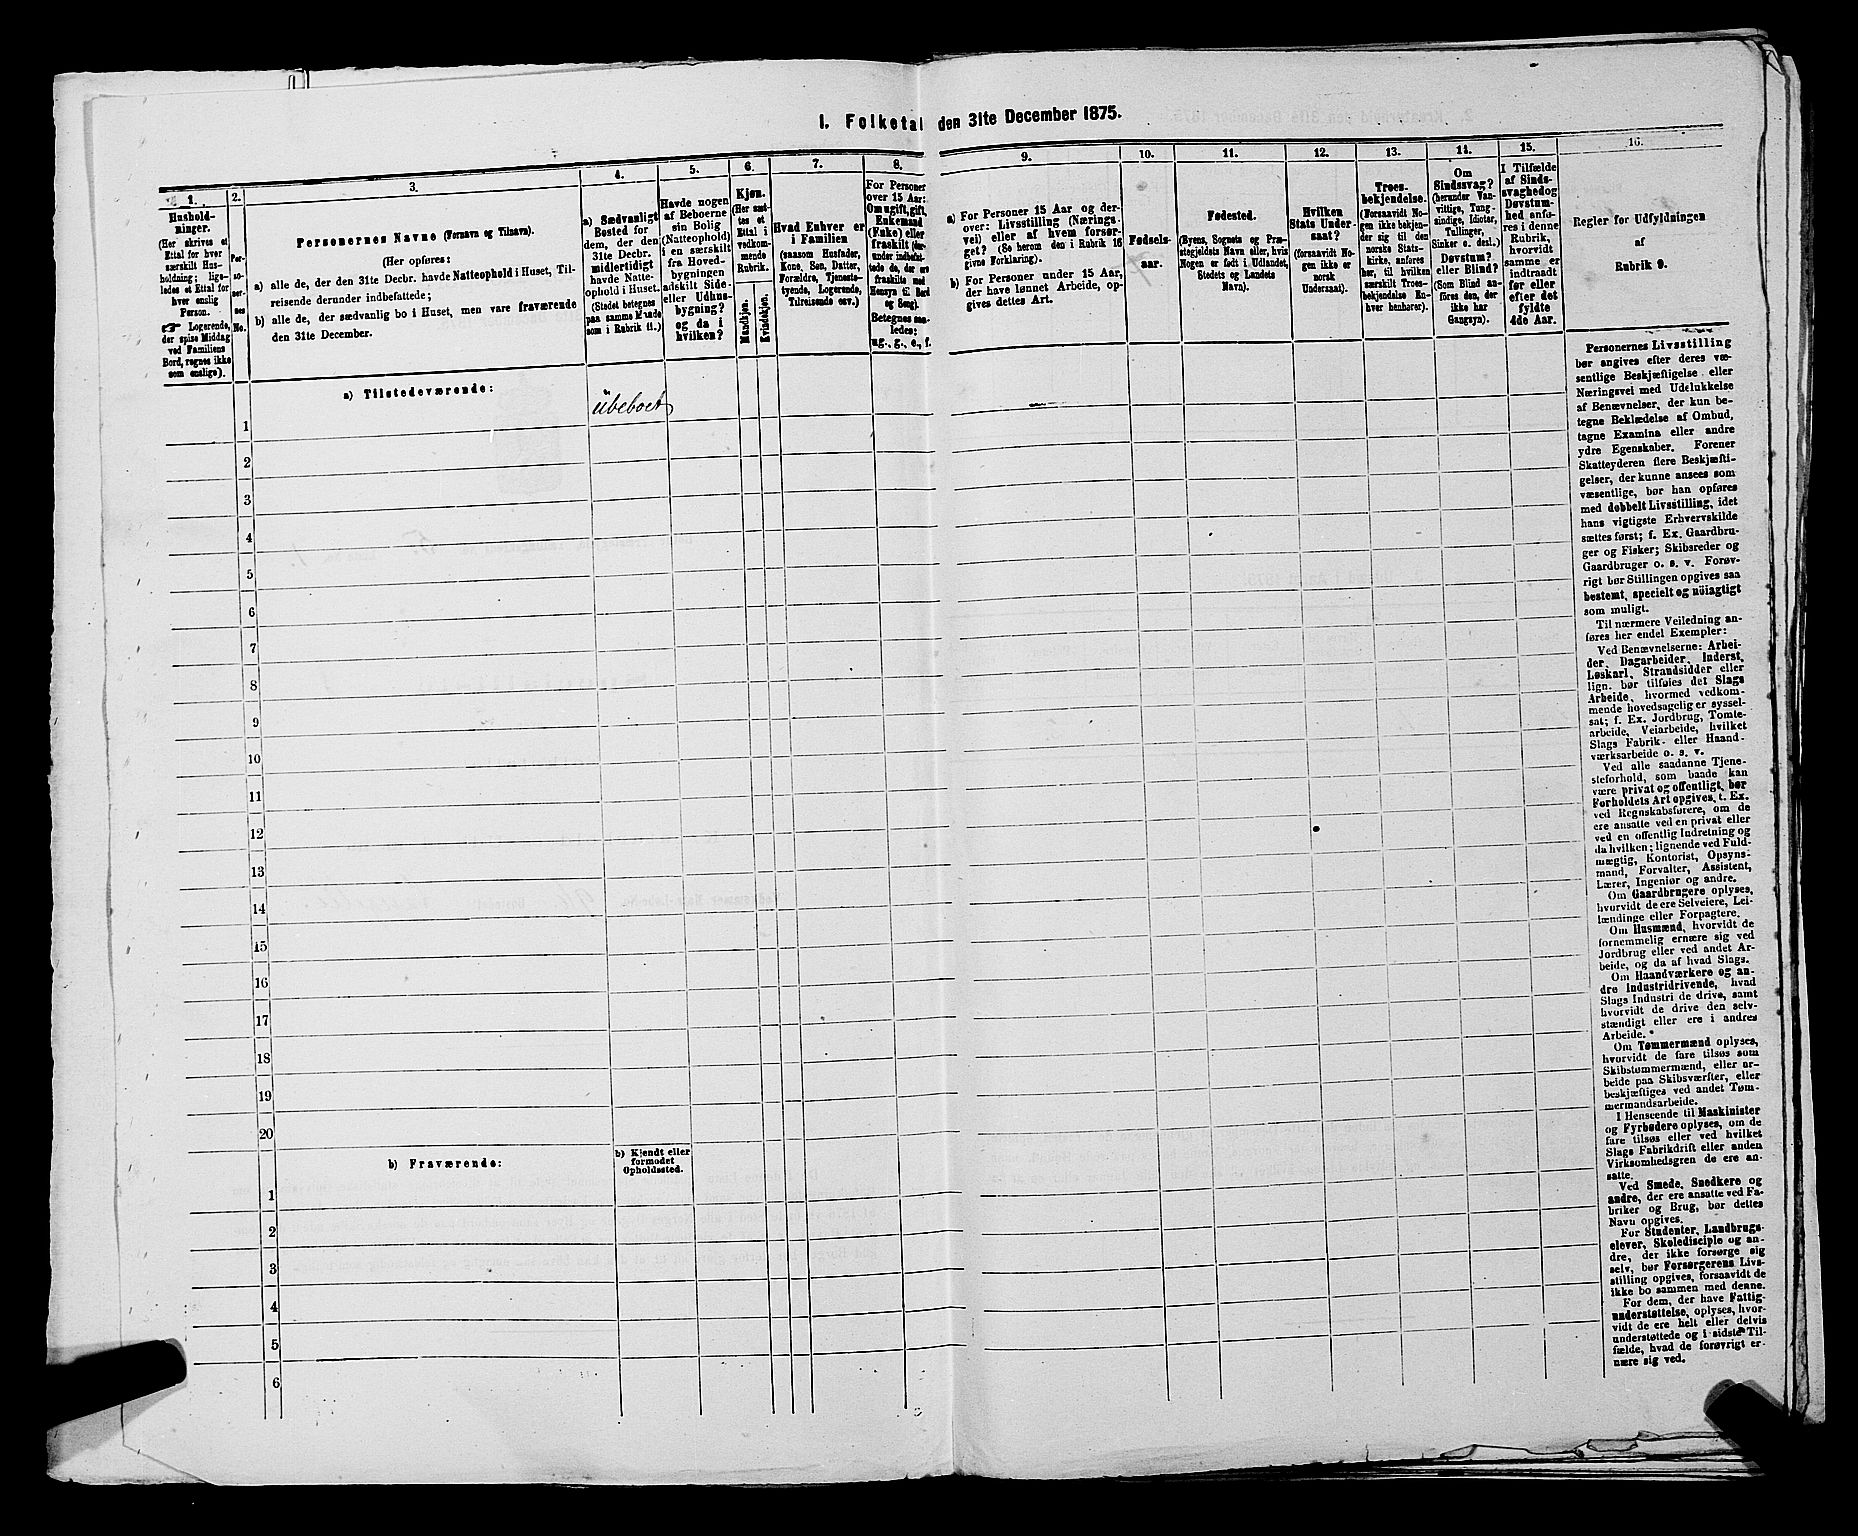 I. Folketal den 31te December 1875.
1.
Hushold-
ninger.
(Her skrives et
Ettal for hver
særskilt Hus-
holdning; lige-
ledes et Ettal for
hver enslig
Person.
☞ Logerende,
der spise Middag
ved Familiens
Bord, regnes ikke
som enslige).
2.
Per-
so-
ner-
nes
No.
3.
Personernes Navne (Fornavn og Tilnavn).
(Her opføres:
a) alle de, der den 31te Decbr. havde Natteophold i Huset, Til-
reisende derunder indbefattede;
b) alle de, der sædvanlig bo i Huset, men vare fraværende
den 31te December.
4.
a) Sædvanligt
Bosted for
dem, der den
31te Decbr.
midlertidigt
havde Natte-
ophold i Huset.
(Stedet betegnes
paa samme Maade
som i Rubrik 11.)
5.
Havde nogen
af Beboerne
sin Bolig
(Natteophold)
i en særskilt
fra Hoved-
bygningen
adskilt Side-
eller Udhus-
bygning?
og da i
hvilken?
6.
Kjøn.
(Her sæt-
tes et
Ettal i
vedkom-
mende
Rubrik.
Mandkjøn.
Kvindekjøn.
7.
Hvad Enhver er
i Familien
(saasom Husfader,
Kone, Søn, Datter,
Forældre, Tjeneste-
tyende, Logerende,
Tilreisende osv.)
8.
For Personer
over 15 Aar:
Om ugift, gift,
Enkemand
(Enke) eller
fraskilt (der-
under indbefat-
tede de, der ere
fraskilte med
Hensyn til Bord
og Seng).
Betegnes saa-
ledes:
ug., g., e., f.
9.
a) For Personer 15 Aar og der-
over: Livsstilling (Nærings-
vei) eller af hvem forsør-
get? (Se herom den i Rubrik 16
givne Forklaring).
b) For Personer under 15 Aar,
der have lønnet Arbeide, op-
gives dettes Art.
10.
Fødsels-
aar.
11.
Fødested.
(Byens, Sognets og Præ-
stegjeldets Navn eller, hvis
Nogen er født i Udlandet,
Stedets og Landets
Navn).
12.
Hvilken
Stats Under-
saat?
(forsaavidt No-
gen ikke er
norsk
Undersaat).
13.
Troes-
bekjendelse.
(Forsaavidt No-
gen ikke bekjen-
der sig til den
norske Stats-
kirke, anføres
her, til hvilken
særskilt Troes-
bekjendelse En-
hver henhører).
14.
Om
Sindssvag?
(herunder Van-
vittige, Tung-
sindige, Idioter,
Tullinger,
Sinker o. desl.)
Døvstum?
eller Blind?
(Som Blind an-
føres den, der
ikke har
Gangsyn).
15.
I Tilfælde
af Sinds-
svaghed og
Døvstum-
hed anfø-
res i denne
Rubrik,
hvorvidt
samme er
indtraadt
før eller
efter det
fyldte
4de Aar.
16.
Regler for Udfyldningen
af
Rubrik 9.
a) Tilstedeværende:
ubeboet
1
2
3
4
5
6
7
8
9
10
11
12
13
14
15
16
17
18
19
20
b) Fraværende:
b) Kjendt eller
formodet
Opholdssted.
1
2
3
4
5
6
Personernes Livsstilling
bør angives efter deres væ-
sentlige Beskjæftigelse eller
Næringsvei med Udelukkelse
af Benævnelser, der kun be-
tegne Beklædelse af Ombud,
tagne Examina eller andre
ydre Egenskaber. Forener
Skatteyderen flere Beskjæfti-
gelser, der kunne ansees som
væsentlige, bør han opføres
med dobbelt Livsstilling, idet
hans vigtigste Erhvervskilde
sættes først; f. Ex. Gaardbru-
ger og Fisker; Skibsreder og
Gaardbruger o. s. v. Forøv-
rigt bør Stillingen opgives saa
bestemt, specielt og nøiagtigt
som muligt.
Til nærmere Veiledning an-
føres her endel Exempler:
Ved Benævnelserne: Arbei-
der, Dagarbeider, Inderst,
Løskarl, Strandsidder eller
lign. bør tilføies det Slags
Arbeide, hvormed vedkom-
mende hovedsagelig er syssel-
sat; f. Ex. Jordbrug, Tomte-
arbeide, Veiarbeide, hvilket
Slags Fabrik- eller Haand-
værksarbeide o. s. v.
Ved alle saadanne Tjene-
steforhold, som baade kan
være privat og offentligt, bør
Forholdets Art opgives, t. Ex.
ved Regnskabsførere, om de
ere ansatte ved en privat eller
ved en offentlig Indretning og
da hvilken; lignende ved Fuld-
mægtig, Kontorist, Opsyns-
mand, Forvalter, Assistent,
Lærer, Ingeniør og andre.
Om Gaardbrugere oplyses,
hvorvidt de ere Selveiere, Lei-
lændinge eller Forpagtere.
Om Husmænd, hvorvidt de
fornemmelig ernære sig ved
Jordbrug eller ved andet Ar-
beide, og da af hvad Slags.
Om Haandværkere og an-
dre Industridrivende, hvad
Slags Industri de drive, samt
hvorvidt de drive den selv-
stændigt eller ere i andres
Arbeide.
Om Tømmermænd oplyses,
hvorvidt de fare tilsøs som
Skibstømmermænd, eller ar-
beide paa Skibsværfter, eller
beskjæftiges ved andet Tøm-
mermandsarbeide.
I Henseende til Maskinister
og Fyrbødere oplyses, om de
fare tilsøs eller ved hvilket
Slags Fabrikdrift eller anden
Virksomhedsgren de ere an-
satte.
Ved Smede, Snedkere og
andre, der ere ansatte ved Fa-
briker og Brug, bør dettes
Navn opgives.
For Studenter, Landbrugs-
elever, Skoledisciple og an-
dre, der ikke forsørge sig
selv, bør Forsørgerens Livs-
stilling opgives, forsaavidt de
ikke bo sammen med denne.
For dem, der have Fattig-
understøttelse, oplyses, hvor-
vidt de ere helt eller delvis
understøttede og i sidste Til-
fælde, hvad de forøvrigt er-
nære sig ved.